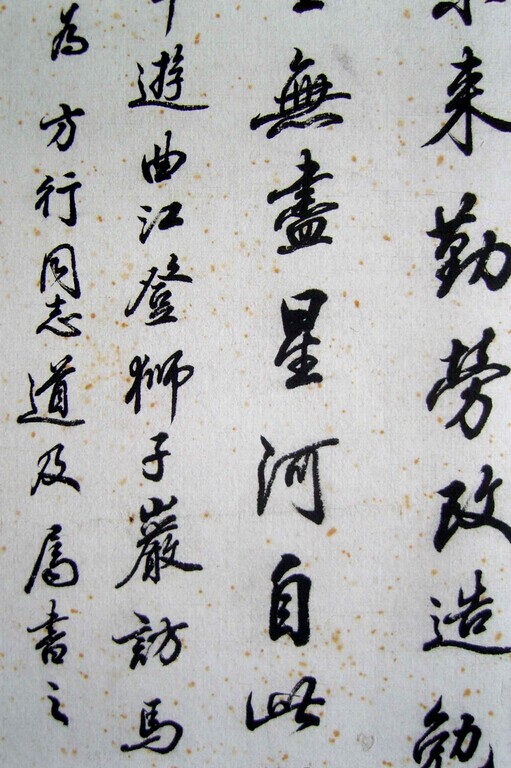 来勤劳改造勉
無盡星河自此
遊曲江登獅子巖訪馬
為方行同志道及属書之